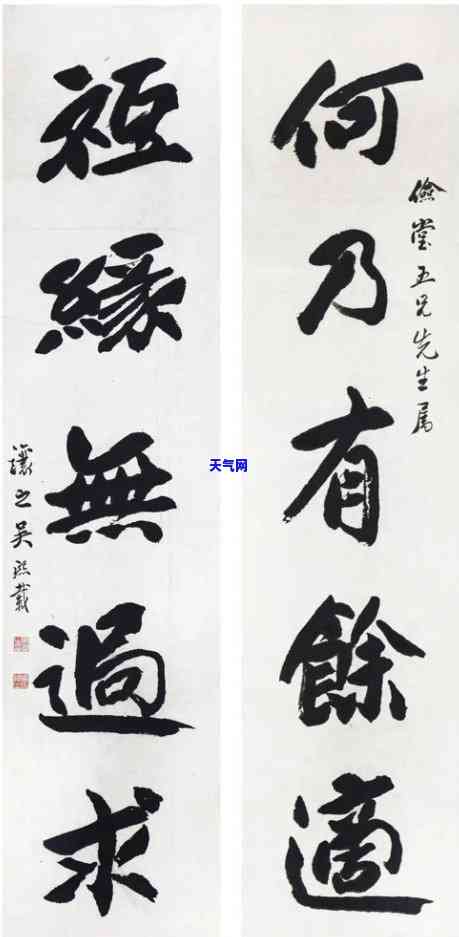 儉堂五兄先生属
何乃有餘適
祗緣無過求
讓之吴熙載
天气网